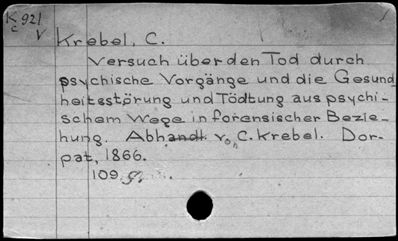 K 921
c
V
Krebel, C.
Versuch über den Tod durch
psychische Vorgänge und die Gesund-
heitsstörung und Tödtung aus psychi-
schem Wege in forensischer Bezie-
hung. Abhandl. von C. Krebel. Dor-
pat, 1866.
109 S.